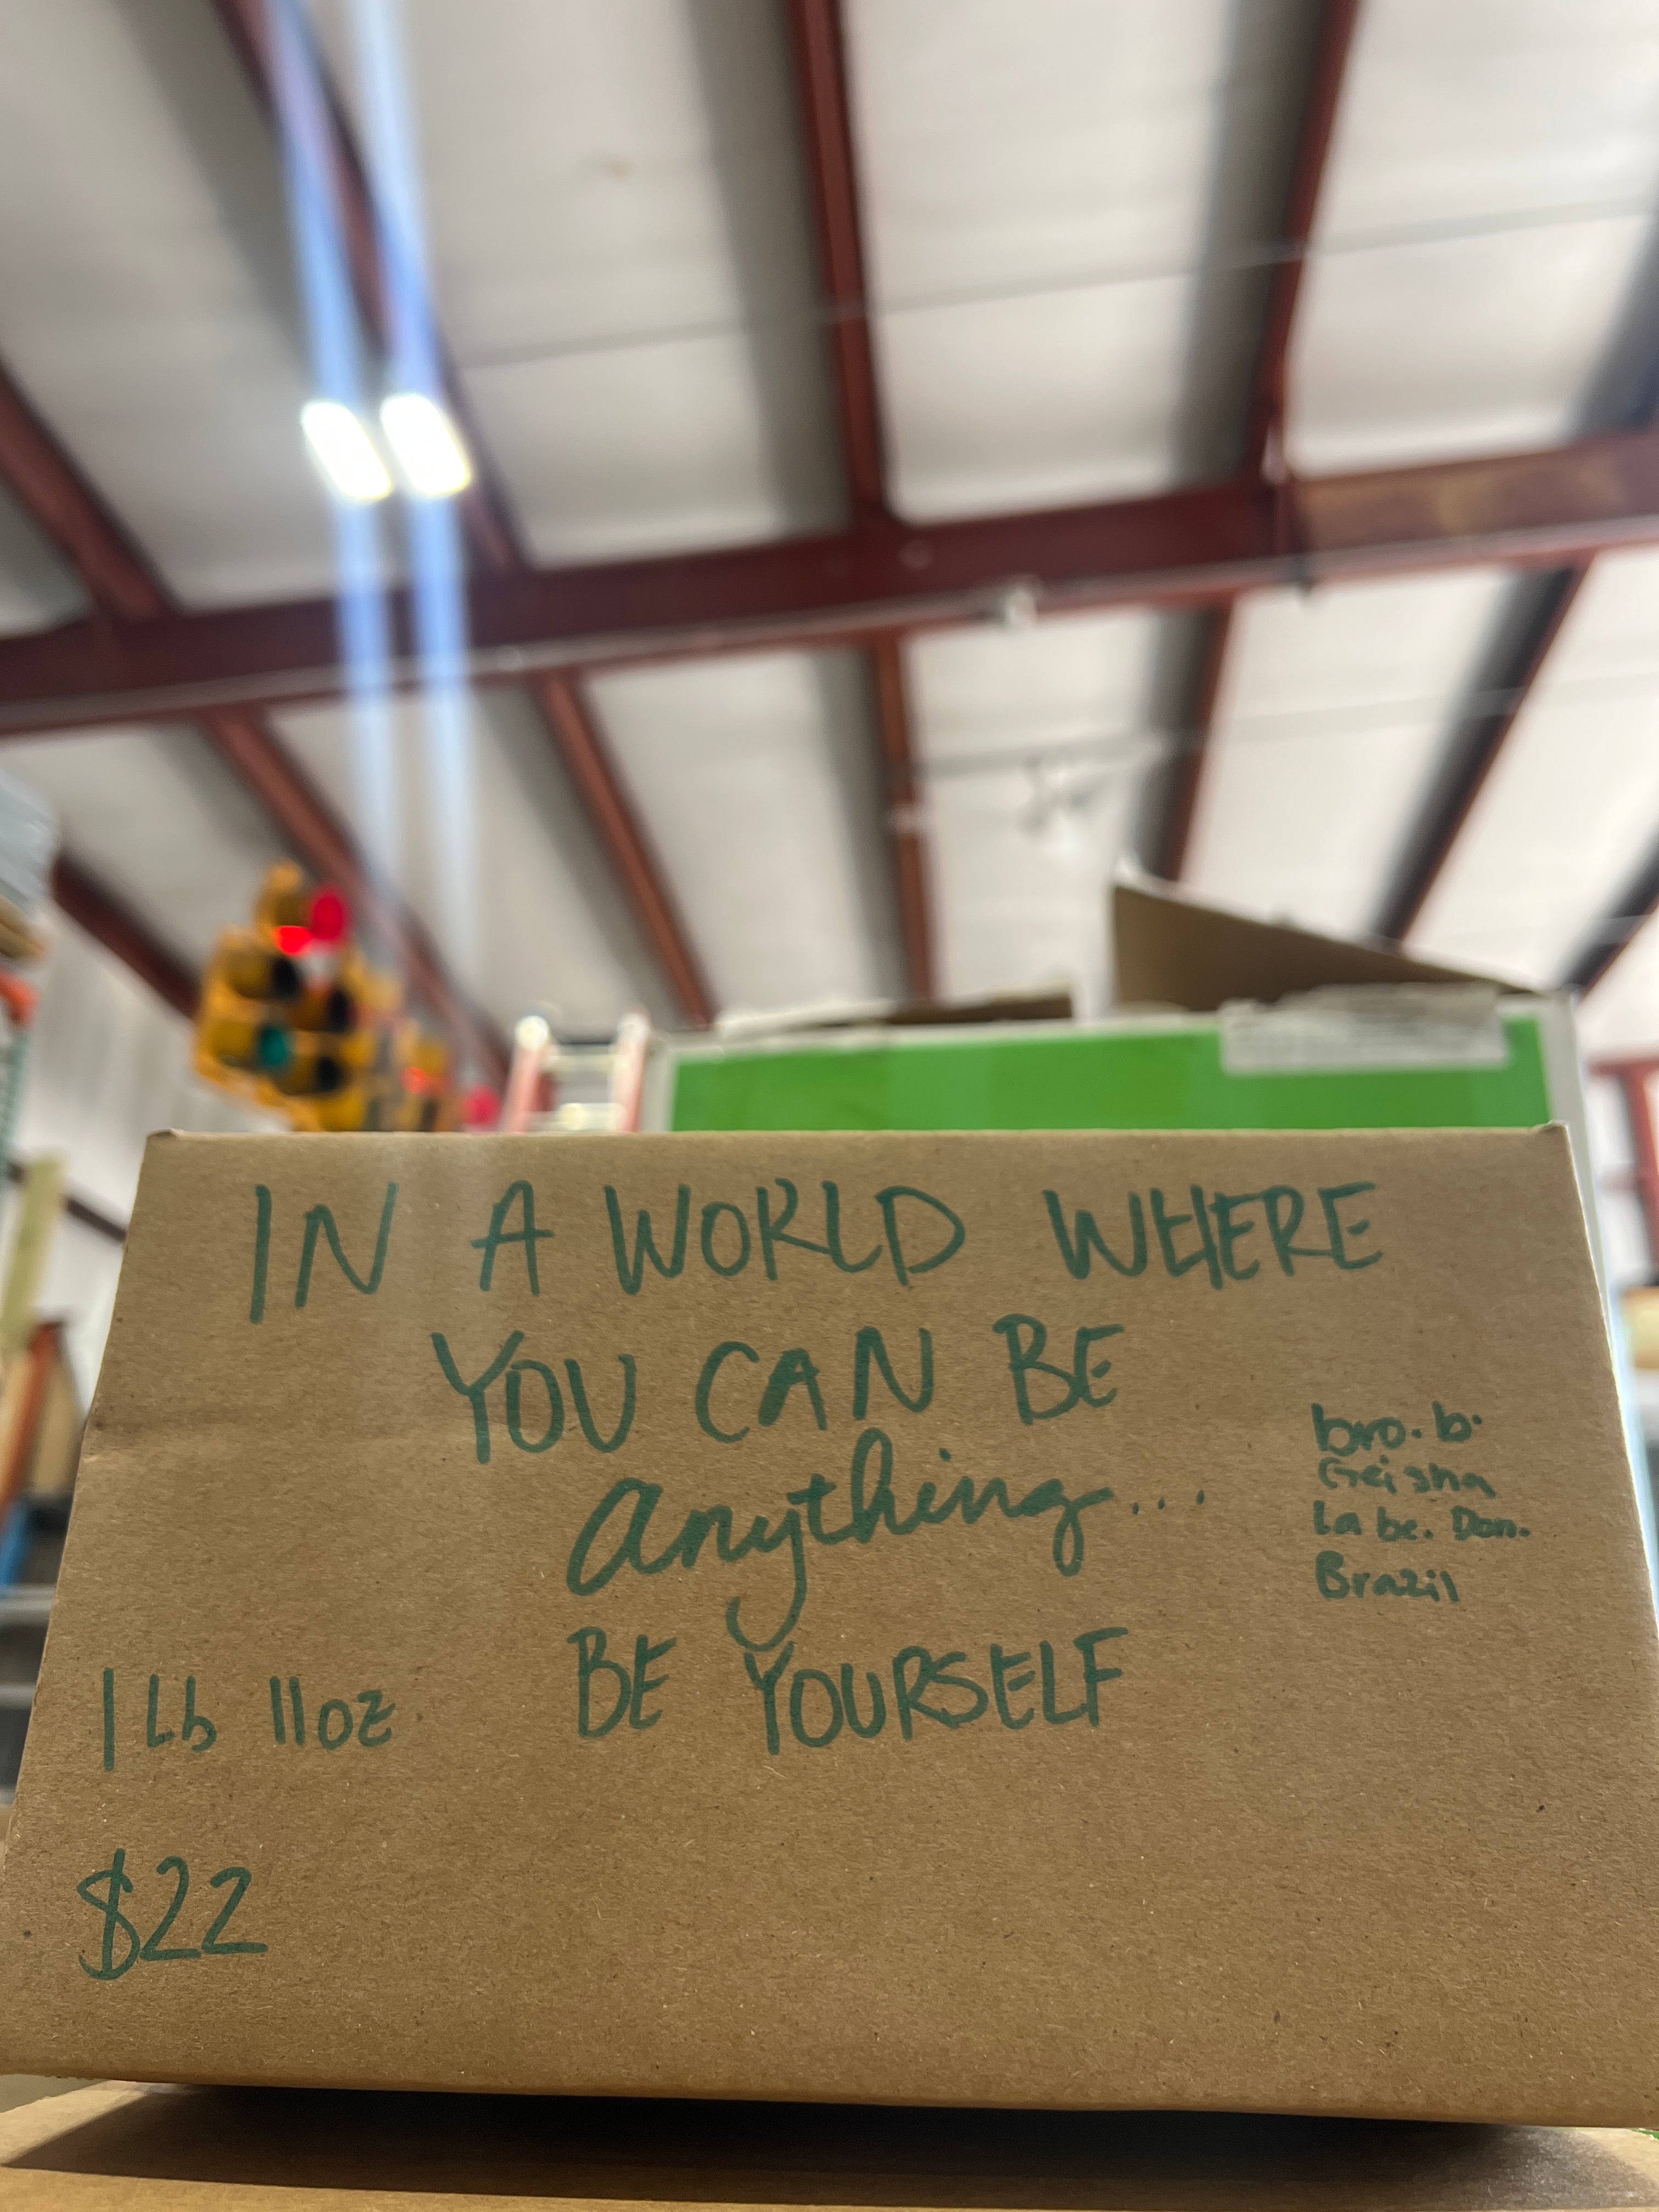 IN A WORLD WHERE
YOU CAN BE
Anything...
BE YOURSELF
bro. b.
Geisha
La be. Don.
Brazil
1 Lb 11oz
$22